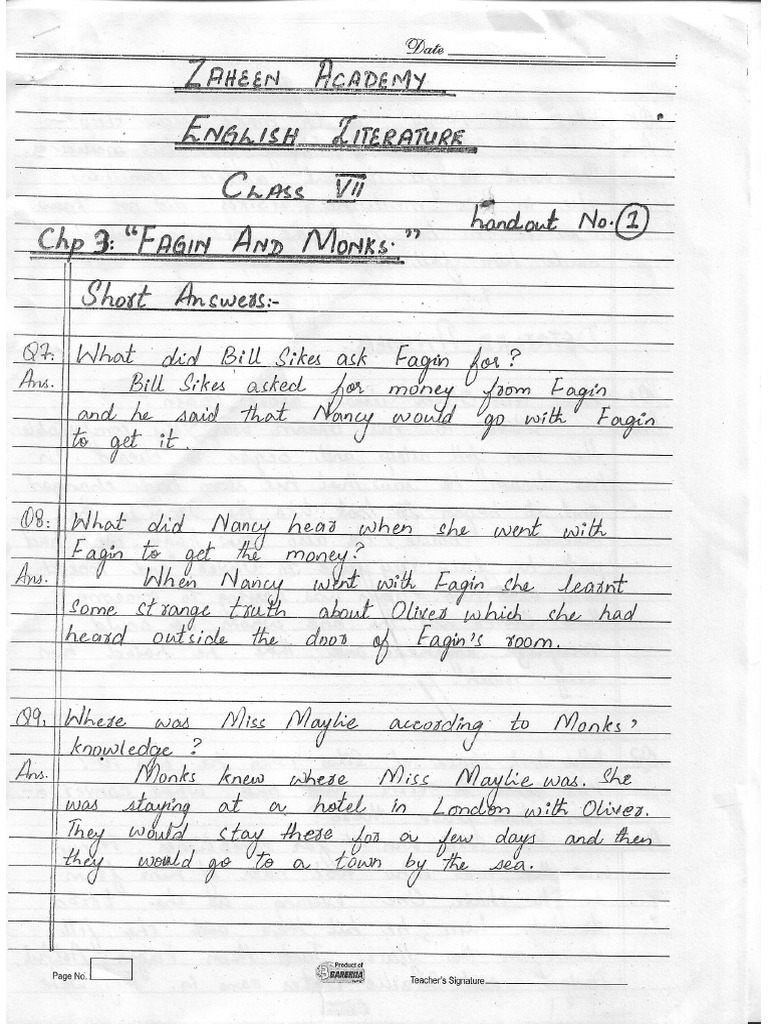 Date
ZAHEEN ACADEMY
ENGLISH LITERATURE
CLASS VII
handout No. 1
Chp 3: "FAGIN AND MONKS."
Short Answers:-
Q7: What did Bill Sikes ask Fagin for?
Ans. Bill Sikes asked for money from Fagin
and he said that Nancy would go with Fagin
to get it.
Q8: What did Nancy hear when she went with
Fagin to get the money?
Ans. When Nancy went with Fagin she learnt
some strange truth about Oliver which she had
heard outside the door of Fagin's room.
Q9. Where was Miss Maylie according to Monks'
knowledge?
Ans. Monks knew where Miss Maylie was. She
was staying at a hotel in London with Oliver.
They would stay there for a few days and then
they would go to a town by the sea.
Page No.
Product of
Teacher's Signature